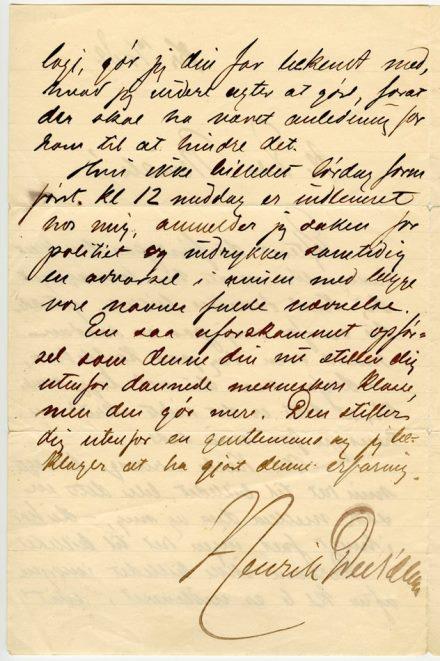 logi, gör jeg din far bekendt med,
hvad jeg videre agter at göre, forat
der skal ha været anledning for
ham til at hindre det.
Hvis ikke billedet lördag form
först. kl 12 middag er indleveret
hos mig, anmelder jeg saken for
politiet og indrykker samtidig
en advarsel i avisen med begge
vore navnes fulde nævnelse.
En saa uforskammet opför-
sel som denne din nu stiller dig
utenfor dannede menneskers klasse,
men den gör mere. Den stiller
dig utenfor en gentlemans og jeg be-
klager at ha gjort denne erfaring.
Henrik